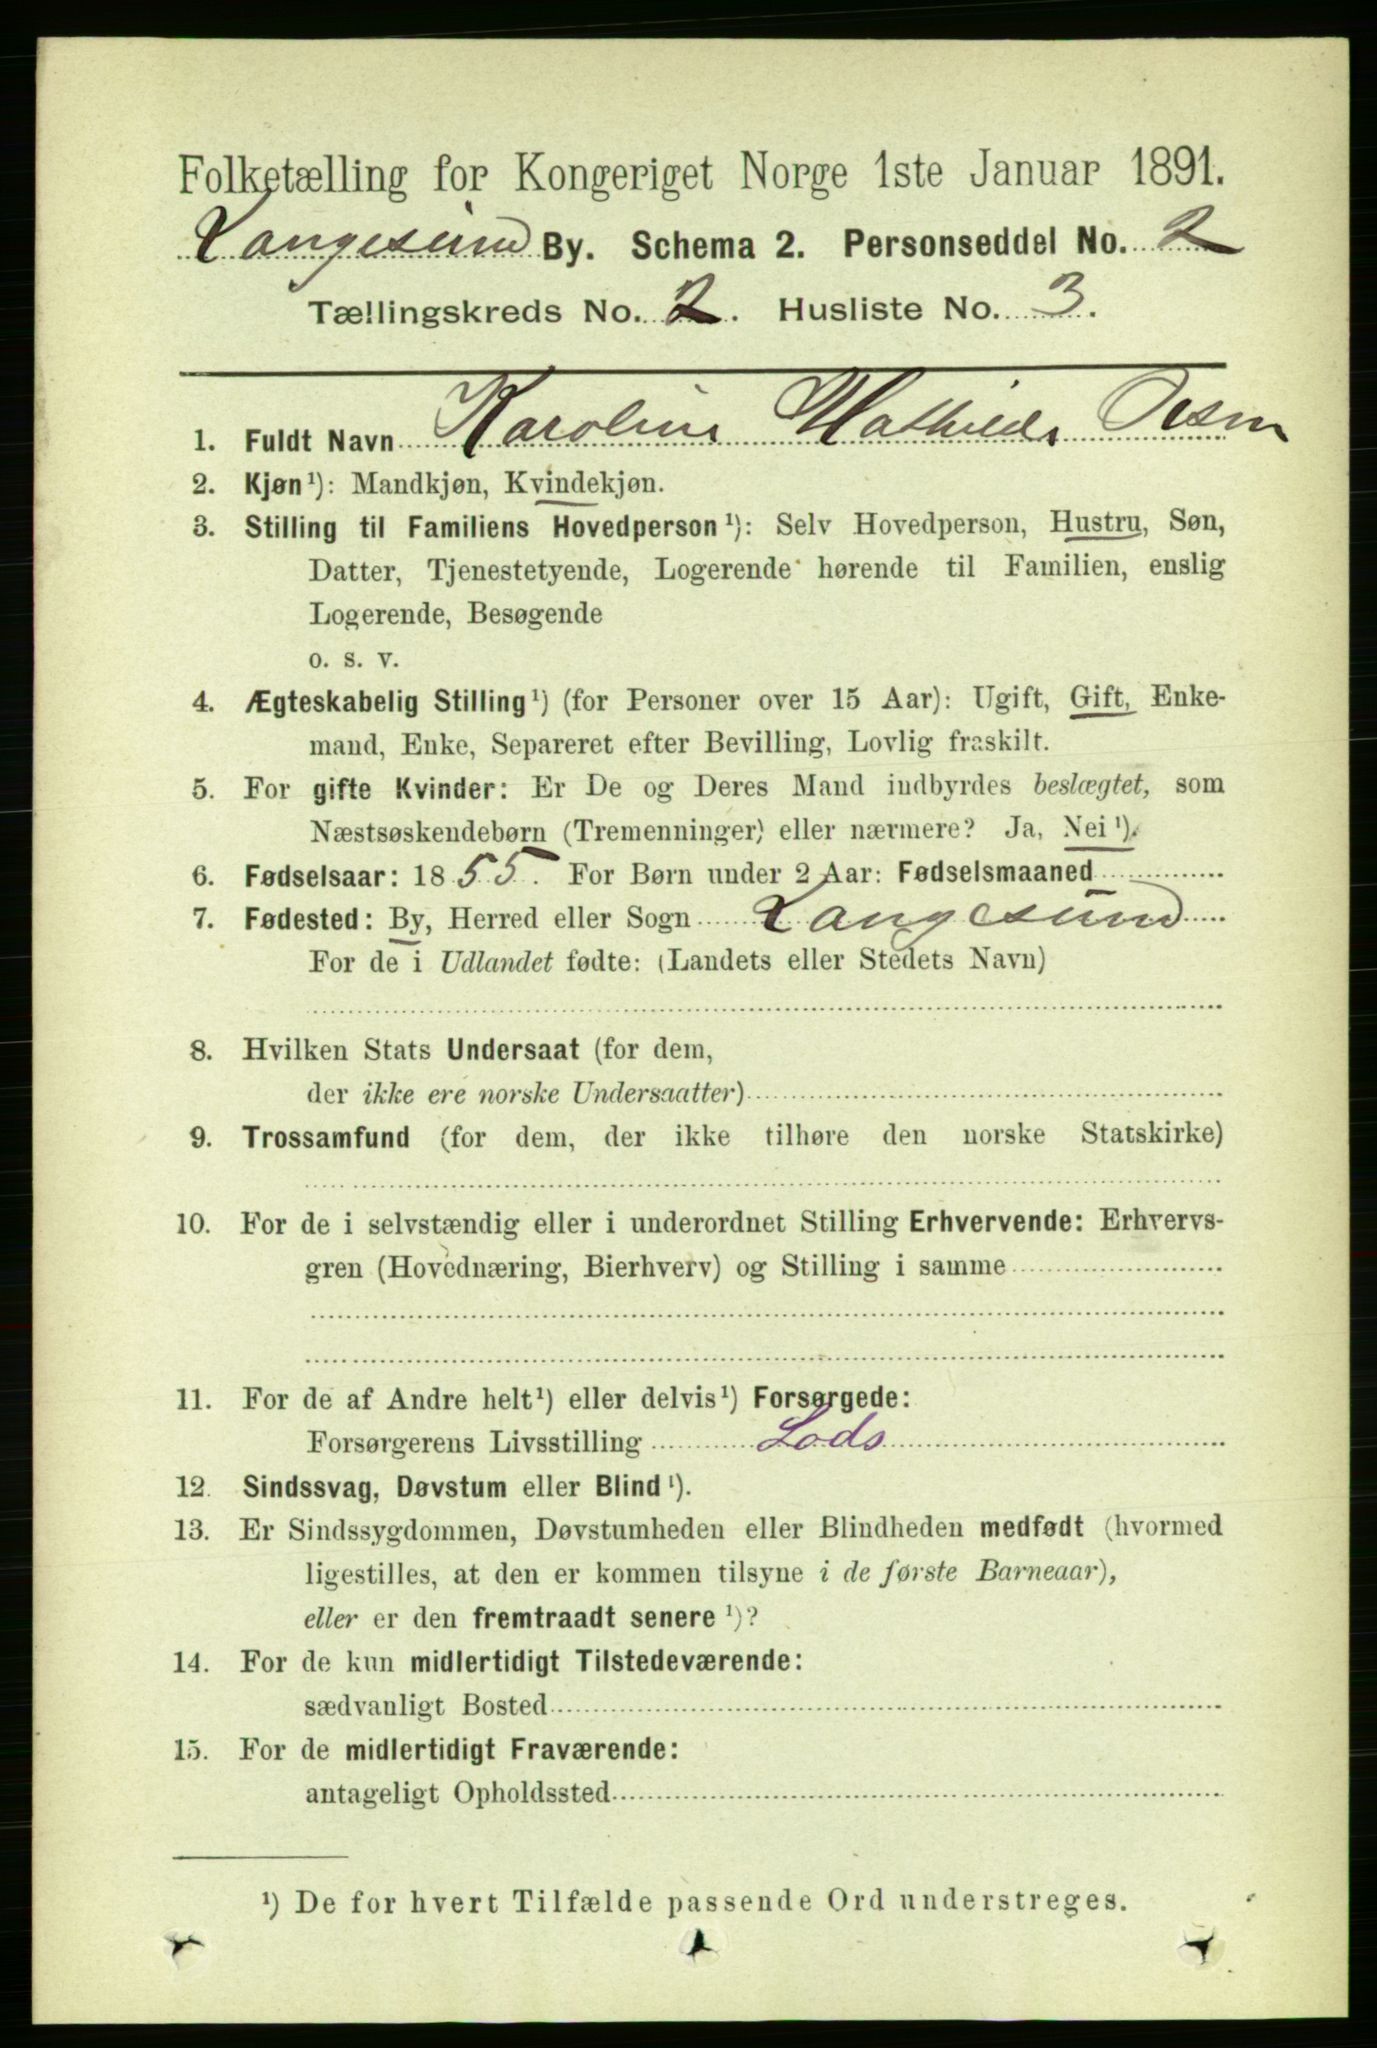 Folketælling for Kongeriget Norge 1ste Januar 1891.
Langesund By. Schema 2. Personseddel No. 2
Tællingskreds No. 2. Husliste No. 3.
1. Fuldt Navn Karoline Mathilde
2. Kjøn ¹): Mandkjøn, Kvindekjøn.
3. Stilling til Familiens Hovedperson ¹): Selv Hovedperson, Hustru, Søn,
Datter, Tjenestetyende, Logerende hørende til Familien, enslig
Logerende, Besøgende
o. s. v.
4. Ægteskabelig Stilling ¹) (for Personer over 15 Aar): Ugift, Gift, Enke-
mand, Enke, Separeret efter Bevilling, Lovlig fraskilt.
5. For gifte Kvinder: Er De og Deres Mand indbyrdes beslægtet, som
Næstsøskendebørn (Tremenninger) eller nærmere? Ja, Nei ¹).
6. Fødselsaar: 1855. For Børn under 2 Aar: Fødselsmaaned
7. Fødested: By, Herred eller Sogn Langesund
For de i Udlandet fødte: (Landets eller Stedets Navn)
8. Hvilken Stats Undersaat (for dem,
der ikke ere norske Undersaatter)
9. Trossamfund (for dem, der ikke tilhøre den norske Statskirke)
10. For de i selvstændig eller i underordnet Stilling Erhvervende: Erhvervs-
gren (Hovednæring, Bierhverv) og Stilling i samme
11. For de af Andre helt ¹) eller delvis ¹) Forsørgede:
Forsørgerens Livsstilling Lods
12. Sindssvag, Døvstum eller Blind ¹).
13. Er Sindssygdommen, Døvstumheden eller Blindheden medfødt (hvormed
ligestilles, at den er kommen tilsyne i de første Barneaar),
eller er den fremtraadt senere ¹)?
14. For de kun midlertidigt Tilstedeværende:
sædvanligt Bosted
15. For de midlertidigt Fraværende:
antageligt Opholdssted
¹) De for hvert Tilfælde passende Ord understreges.